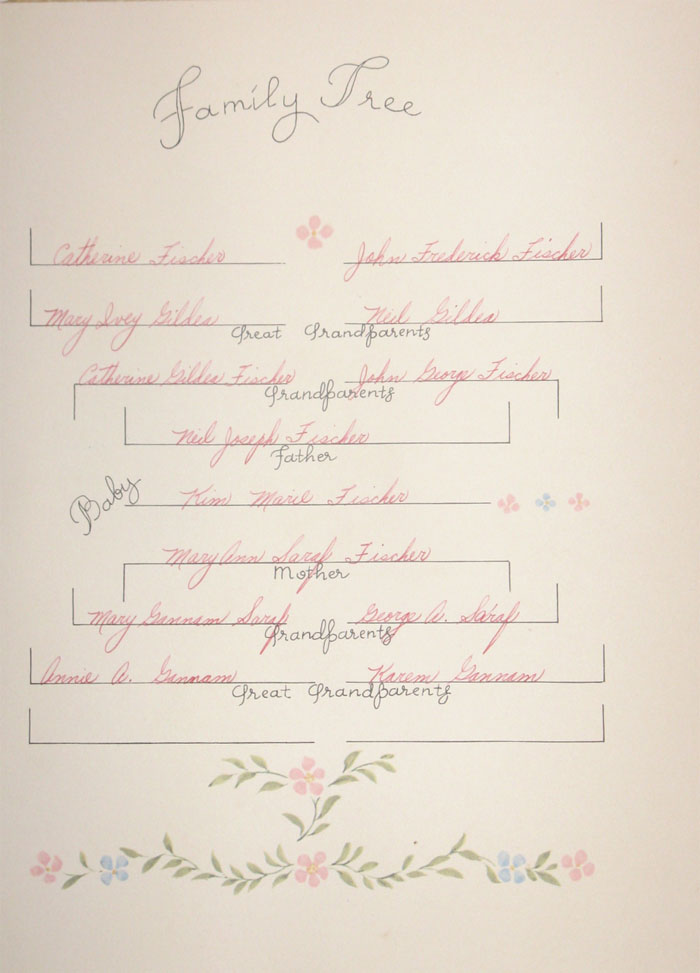 Family Tree
Catherine Fischer John Frederick Fischer
Mary Ivey Gildea Neil Gildea
Great Grandparents
Catherine Gildea Fischer John George Fischer
Grandparents
Neil Joseph Fischer
Father
Baby Kim Marie Fischer
Mary Ann Saraf Fischer
Mother
Mary Gannam Saraf George A. Saraf
Grandparents
Annie A. Gannam Karem Gannam
Great Grandparents